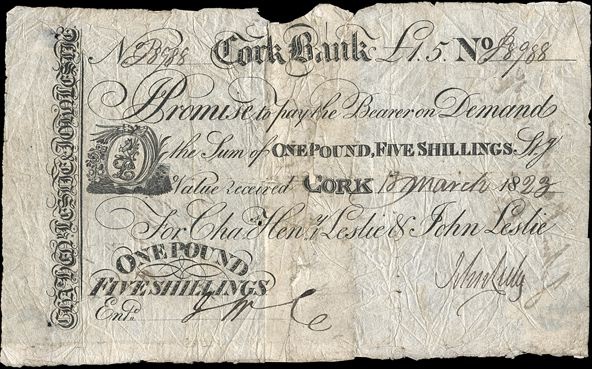 CHAs HENy LESLIE & JOHN LESLIE
No Cork Bank £1.5. No
I Promise to pay the Bearer on Demand
the Sum of ONE POUND, FIVE SHILLINGS, Stg
Value received CORK 13 March 1823
For Chas. Heny. Leslie & John Leslie
ONE POUND
FIVE SHILLINGS
Entd.